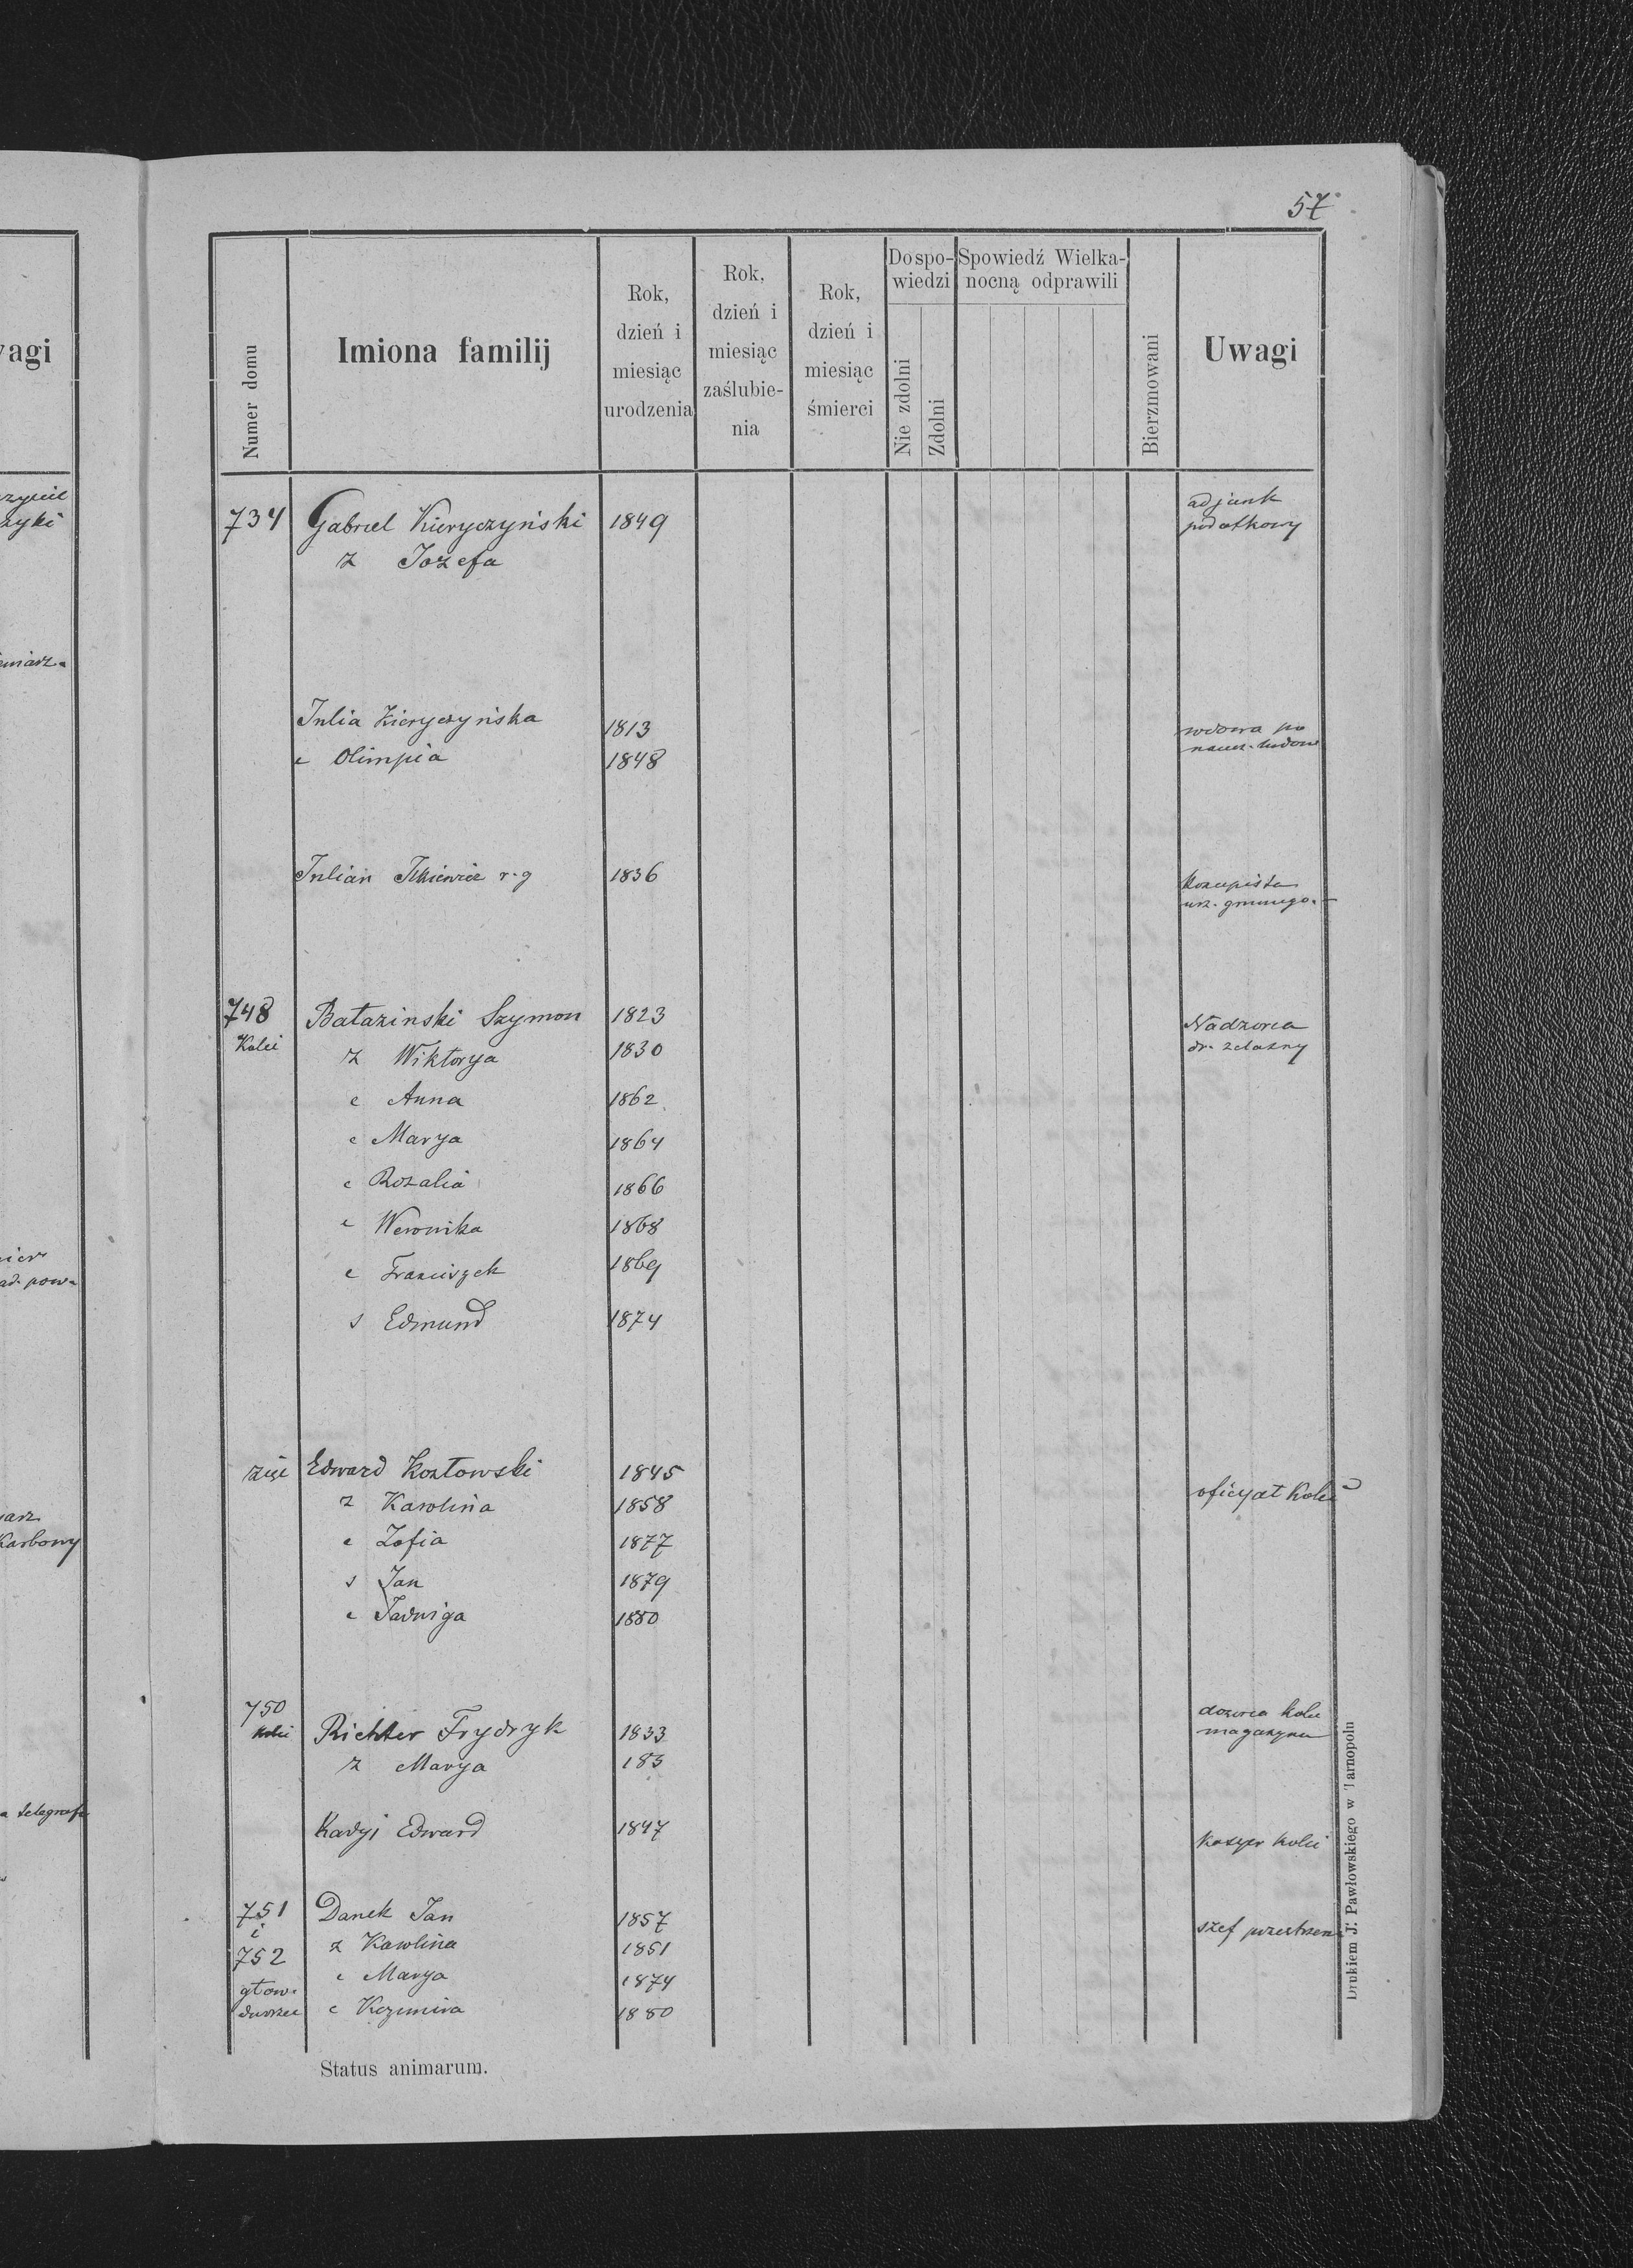 57
Numer domu
Imiona familij
Rok, dzień i miesiąc urodzenia
Rok, dzień i miesiąc zaślubie- nia
Rok, dzień i miesiąc śmierci
Do spo- wiedzi
Nie zdolni
Zdolni
Spowiedź Wielka- nocną odprawili
Bierzmowani
Uwagi
vagi
zyki
734 Gabriel Kieryczyński 1849 adjunk podatkowy
ż Jozefa
Julia Kieryczyńska 1813 wdowa po
c Olimpia 1848
Julian r-g 1836
748 Batazinski Szymon 1823 Nadzorca
Kolei ż Wiktorya 1830 dr. żelazny
c Anna 1862
c Marya 1864
c Rozalia 1866
c Weronika 1868
c Franciszek 1869
s Edmund 1874
Edward Kozłowski 1845
ż Karolina 1858 oficyał Kolei
c Zofia 1877
s Jan 1879
c Jadwiga 1880
karbowy
750
Kolei Richter Frydryk 1833 dozorca kolei magazynu
ż Marya 183
Kadyi Edward 1847 Kasyer kolei
751 Danek Jan 1857 szef
i
752 ż Karolina 1851
głow. c Marya 1874
c Kazimira 1880
Status animarum.
Drukiem J. Pawłowskiego w Tarnopolu